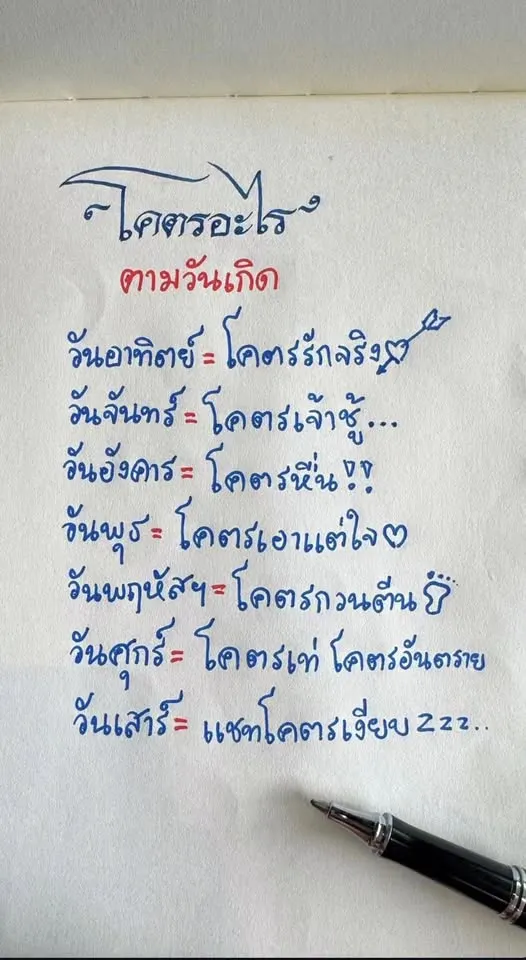 โคตรอะไร
ตามวันเกิด
วันอาทิตย์ = โคตรรักจริง
วันจันทร์ = โคตรเจ้าชู้...
วันอังคาร = โคตรหื่น !!
วันพุธ = โคตรเอาแต่ใจ♡
วันพฤหัสฯ = โคตรกวนตีน
วันศุกร์ = โคตรเท่ โคตรอันตราย
วันเสาร์ = แชทโคตรเงียบ zzz..